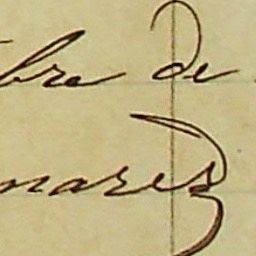 bre de
nares